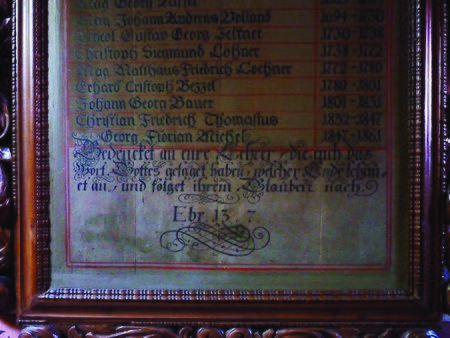 Mag. Johann Andreas Volland 1694 - 1730
Gustav Georg Zeltner 1730 - 1738
Christoph Siegmund Löhner 1738 - 1772
Mag. Matthäus Friedrich Lochner 1772 - 1780
Erhard Cristoph Bezzel 1780 - 1801
Johann Georg Bauer 1801 - 1831
Christian Friedrich Thomasius 1832 - 1847
Georg Florian Michel 1847 - 1861
Gedencket an eure Lehrer, die euch das
Wort Gottes gesaget haben, welcher Ende schau-
et an, und folget ihrem Glauben nach.
Ebr 13, 7